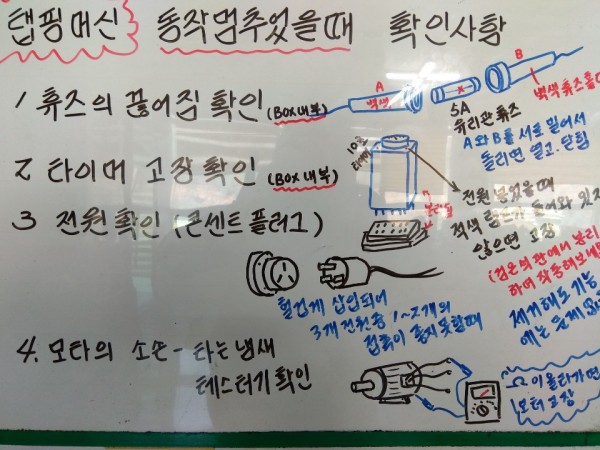 탭핑머신 동작멈추었을때 확인사항
1 휴즈의 끊어짐 확인 (BOX내부)
A
백색
B
백색 휴즈홀더
5A
유리관 휴즈
A와 B를 서로 밀어서
돌리면 열고. 닫힘
2 타이머 고장확인 (BOX내부)
10초
타이머
분리됨
전원 넣었을때
적색 램프가 들어와 있지
않으면 고장
(검은색 판에서 분리
하여 작동해보세요
제거해도 기능
에는 문제
3 전원확인 (콘센트 플러그)
헐겁게 삽입되어
3개 전원중 1~2개의
접촉이 좋지못할때
4. 모타의 소손 - 타는냄새
테스터기 확인
Ω이 올라가면
모터 고장